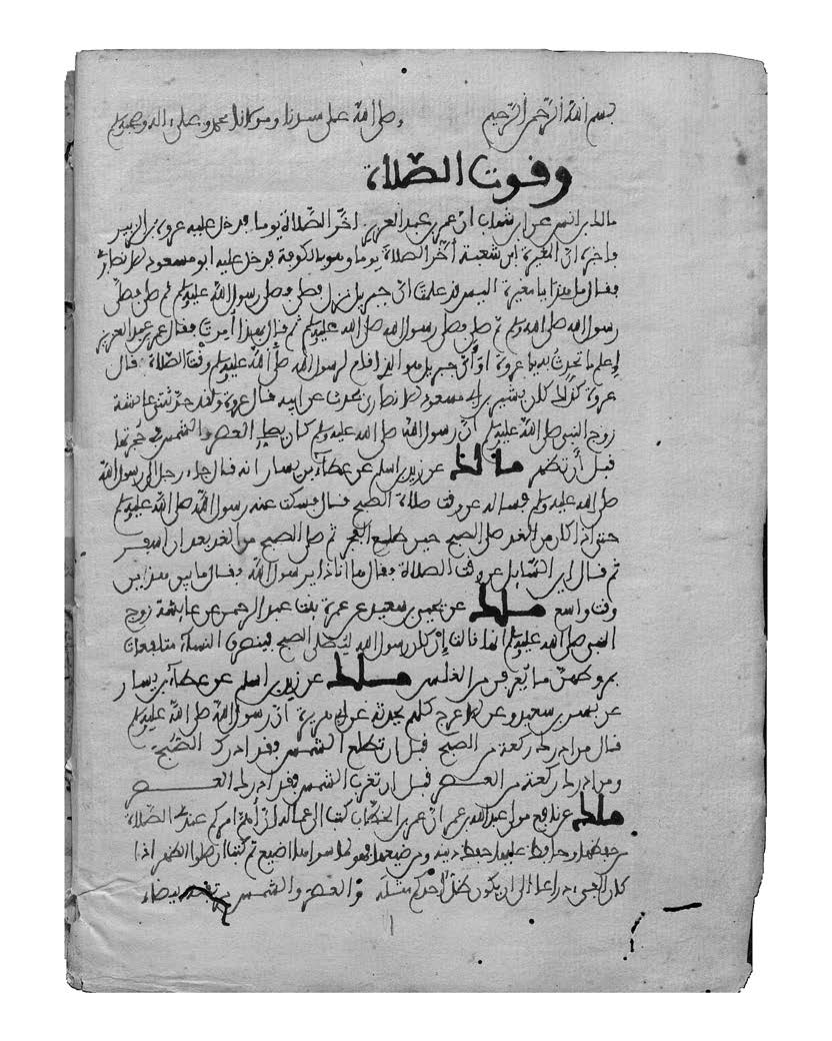 بسم الله الرحمن الرحيم وصلى الله على سيدنا ومولانا محمد وعلى ءاله وصحبه وسلم
وقوت الصلاة
مالك بن انس عن ابن شهاب ان عمر بن عبد العزيز اخر الصلاة يوما فدخل عليه عروة بن الزبير
فاخبره ان المغيرة ابن شعبة أخر الصلاة يوما وهو بالكوفة فدخل عليه ابو مسعود الانصاري
فقال ما هذا يا مغيرة اليس قد علمت ان جبريل نزل فصلى فصلى رسول الله صلى الله عليه وسلم ثم صلى فصلى
رسول الله صلى الله عليه وسلم ثم صلى فصلى رسول الله صلى الله عليه وسلم ثم قال بهذا أمرت فقال عمر بن عبد العزيز
اعلم ما تحدث به يا عروة او ان جبريل هو الذي اقام لرسول الله صلى الله عليه وسلم وقت الصلاة قال
عروة كذلك كان بشير بن ابي مسعود الانصاري يحدث عن ابيه قال عروة ولقد حدثتني عائشة
زوج النبي صلى الله عليه وسلم ان رسول الله صلى الله عليه وسلم كان يصلي العصر والشمس في حجرتها
قبل أن تظهر مالك عن زيد بن اسلم عن عطاء بن يسار انه قال جاء رجل الى رسول الله
صلى الله عليه وسلم فساله عن وقت صلاة الصبح قال فسكت عنه رسول الله صلى الله عليه وسلم
حتى اذا كان من الغد صلى الصبح حين طلع الفجر ثم صلى الصبح من الغد بعد ان اسفر
ثم قال اين السائل عن وقت الصلاة فقال ها انا ذا يا رسول الله فقال ما بين هذين
وقت واسع مالك عن يحيى بن سعيد عن عمرة بنت عبد الرحمن عن عائشة زوج
النبي صلى الله عليه وسلم انها قالت إن كان رسول الله ليصلي الصبح فينصرف النساء متلفعات
بمروطهن ما يعرفن من الغلس مالك عن زيد بن اسلم عن عطاء بن يسار
عن بسر بن سعيد وعن الاعرج كلهم يحدثه عن ابي هريرة ان رسول الله صلى الله عليه وسلم
قال من ادرك ركعة من الصبح قبل ان تطلع الشمس فقد ادرك الصبح
ومن ادرك ركعة من العصر قبل ان تغرب الشمس فقد ادرك العصر
مالك عن نافع مولى عبد الله بن عمر ان عمر بن الخطاب كتب الى عماله ان أهم امركم عندي الصلاة
من حفظها وحافظ عليها حفظ دينه ومن ضيعها فهو لما سواها اضيع ثم كتب ان صلوا الظهر اذا
كان الفيء ذراعا الى ان يكون ظل أحدكم مثله والعصر والشمس مرتفعة بيضاء